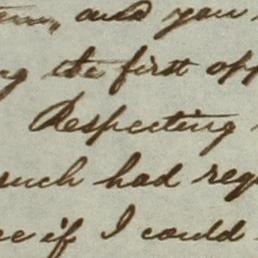 and you
the first opp
Respecting
such had reg
if I could